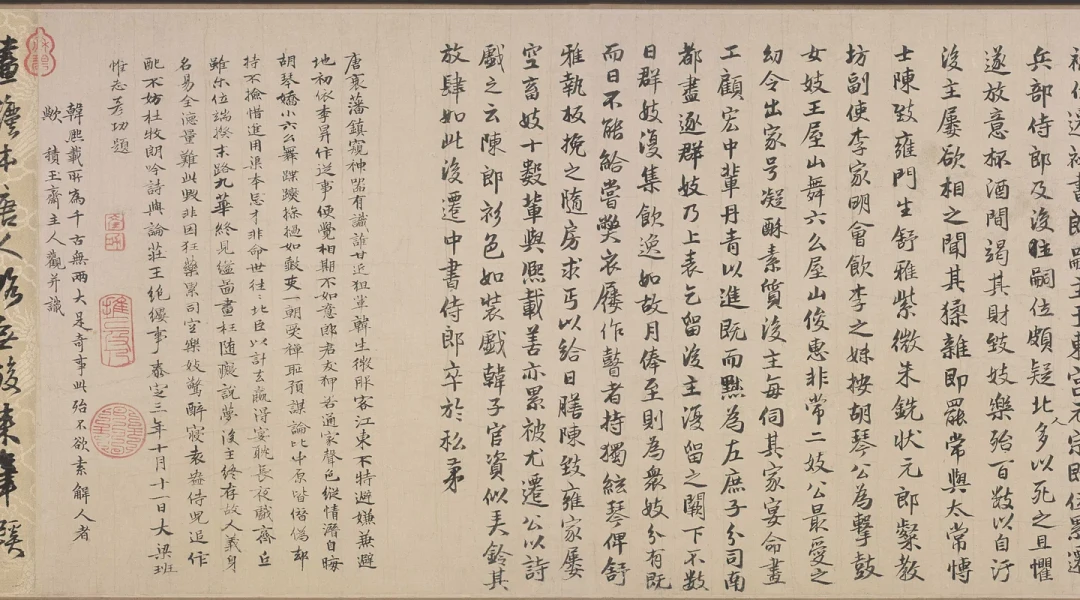 兵部侍郎及後主嗣位頗疑北人多以死之且懼
遂放意杯酒間竭其財致妓樂殆百數以自汙
後主屢欲相之聞其猱雜即罷常與太常博
士陳致雍門生舒雅紫微朱銑狀元郎粲教
坊副使李家明會飲李之妹按胡琴公為擊鼓
女妓王屋山舞六么屋山俊惠非常二妓公最愛之
幼令出家号凝酥素質後主每伺其家宴命畫
工顧宏中輩丹青以進既而黜為左庶子分司南
都盡逐群妓乃上表乞留後主復留之闕下不數
日群妓復集飲逸如故月俸至則為衆妓分有既
而日不能給嘗弊衣屨作瞽者持獨絃琴俾舒
雅執板挽之隨房求丐以給日膳陳致雍家屢
空畜妓十數輩與熙載善亦累被尤遷公以詩
戲之云陳郎衫色如裝戲韓子官資似美鈴其
放肆如此後遷中書侍郎卒於私第
唐衰藩鎮窺神器有識誰甘近狙輩韓生微服客江東不特避嫌兼避
地初依李昪作逆事便覺相期不如意郎君友狎若通家聲色縱情潛自晦
胡琴嬌小六么舞蹀躞摻撾如鼓吏一朝受禪耻預謀論比中原皆僭偽却
持不撿惜進用渠本忌才非命世往往北臣以計去贏得宴耽長夜戲齊丘
雖尔位端揆末路九華終見縊啚畫枉隨癡說夢後主終存故人義身
名易全德量難此毀非因狂藥累司空樂妓驚醉寢袁盎侍兒追作
配不妨杜牧朗吟詩與論莊王絕纓事 泰定三年十月十一日大梁班
惟志彥功題
韓熙載所為千古無兩大是奇事此殆不欲索解人者
歟 積玉齋主人觀并識